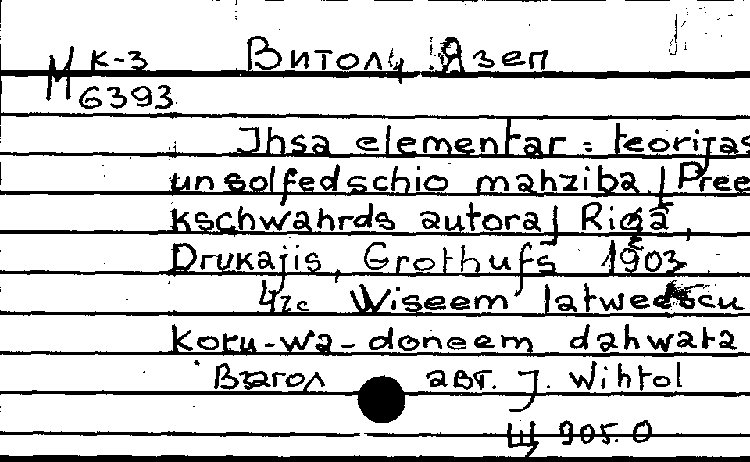 М К-3 Витоль Язеп
6393
Jhsa elementar = teorijas
un solfedschio mahziba / Pree
kschwahrds autora / Rigā,
Drukajis, Grothufs 1903
42c Wiseem latweescu
koru-wa-doneem dahwata
Взагол авт. J. Wihtol
Щ 905.0